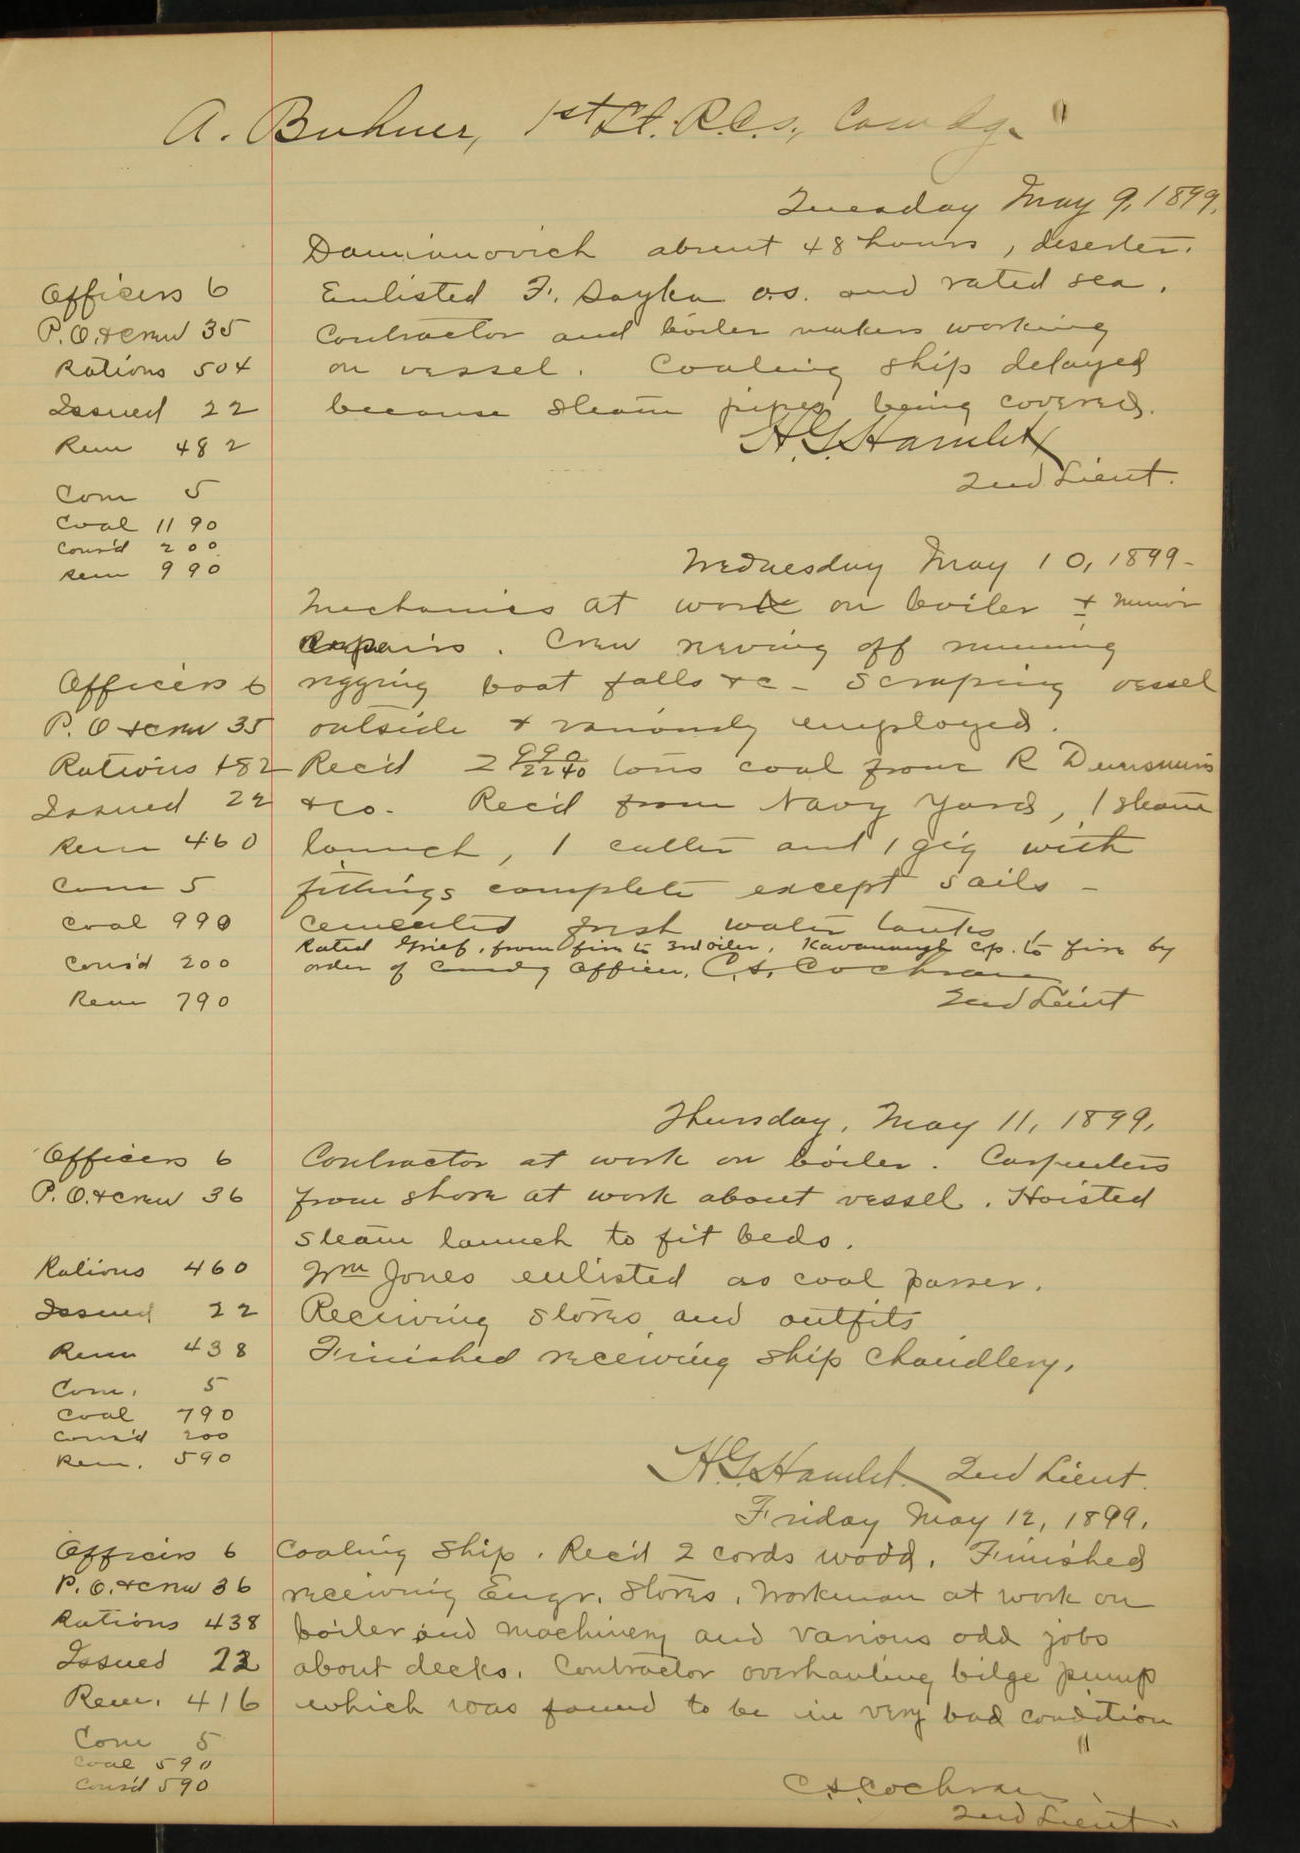 A. Buhner, 1st Lt. R.C.S., Comdg.
Tuesday May 9, 1899.
Damianovich absent 48 hours, deserter.
Officers 6
Enlisted F. Sayka o.s. and rated sea.
P.O. & crew 35
Contractor and boiler makers working
Rations 504
on vessel. Coaling ship delayed
Issued 22
because steam pipes being covered.
Rem 482
H.G. Hamlet
2nd Lieut.
Com 5
Coal 1190
Cons'd 200
Rem 990
Wednesday May 10, 1899-
Mechanics at work on boiler & minor
repairs. Crew reeving off running
Officers 6
rigging boat falls &c - Scraping vessel
P.O & crew 35
outside & variously employed.
Rations 482
Rec'd 2 990/2240 tons coal from R Dunsmuirs
Issued 22
& co. Rec'd from Navy Yard, 1 steam
Rem 460
launch, 1 cutter and 1 gig with
Com 5
fittings complete except sails -
Coal 990
cemented fresh water tanks,
Rated Grief, from fire to 3rd oiler, Kavannagh c.p. to fire by
Cons'd 200
order of Comdg Officer. C.S. Cochran
Rem 790
2nd Lieut
Thursday, May 11, 1899.
Officers 6
Contractor at work on boiler. Carpenters
P.O. & crew 36
from shore at work about vessel. Hoisted
steam launch to fit beds.
Rations 460
Wm Jones enlisted as coal passer.
Issued 22
Receiving stores and outfits
Rem 438
Finished receiving ship chandlery.
Com. 5
Coal 790
Cons'd 200
Rem. 590
H.G. Hamlet. 2nd Lieut.
Friday May 12, 1899.
Officers 6
Coaling ship. Rec'd 2 cords wood. Finished
P.O. & crew 36
receiving Engr. stores. Workman at work on
Rations 438
boiler and machinery and various odd jobs
Issued 22
about decks. Contractor overhauling bilge pump
Rem. 416
which was found to be in very bad condition
Com 5
Coal 590
Cons'd 590
C.S. Cochran.
2nd Lieut.